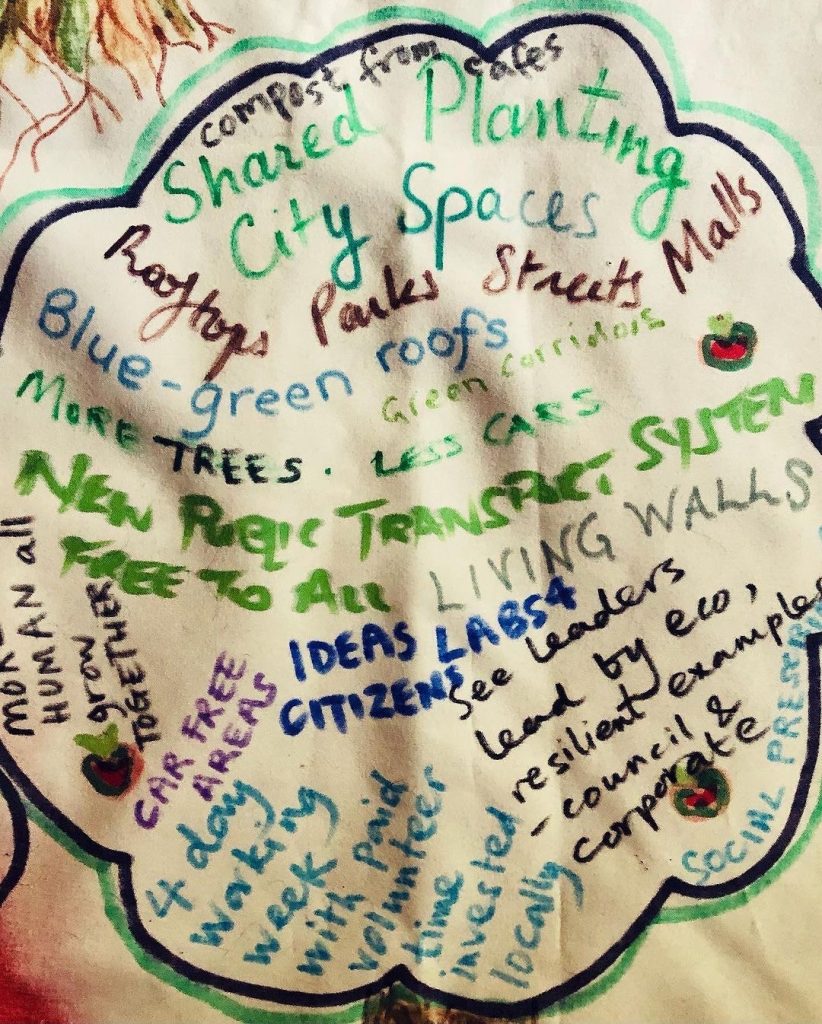 compost from cafes
Shared Planting
City Spaces
Rooftops Parks Streets Malls
Blue-green roofs
Green corridors
MORE TREES. LESS CARS
NEW PUBLIC TRANSPORT SYSTEM
FREE TO ALL
LIVING WALLS
IDEAS LABS 4
CITIZENS
See leaders
lead by eco,
resilient examples
- council &
corporate
HUMAN all
grow
TOGETHER
CAR FREE
AREAS
4 day
working
week
with paid
volunteer
time
invested
locally
SOCIAL